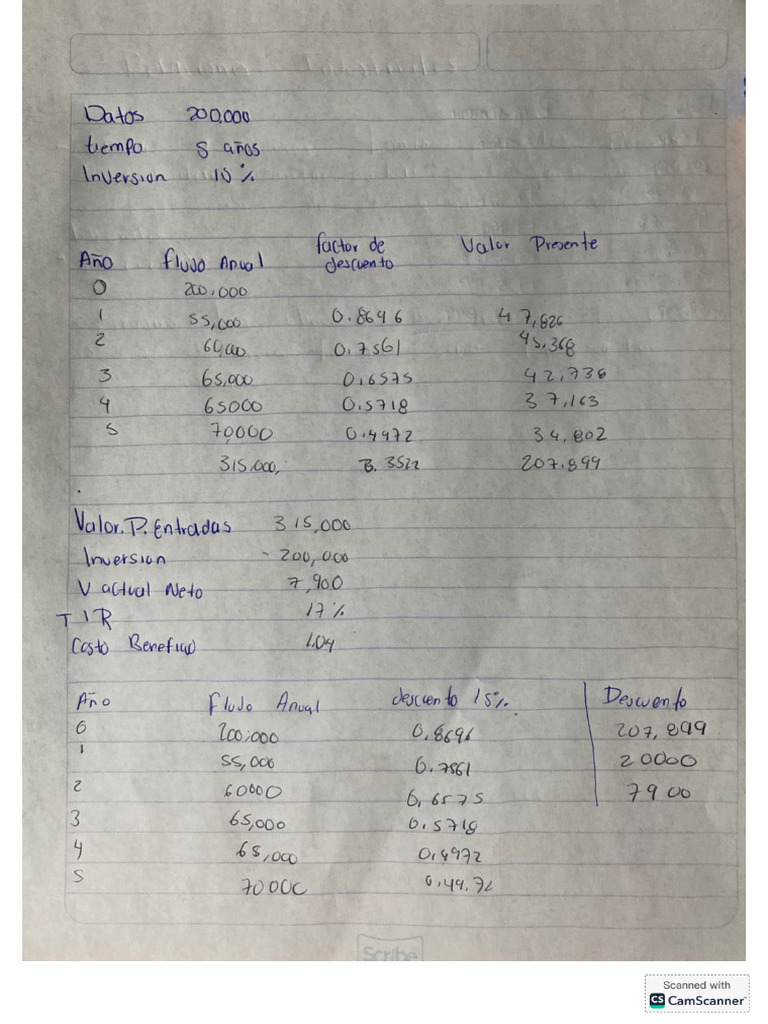 Datos 200,000
tiempo 5 años
Inversion 15 %
Año Flujo Anual factor de descuento Valor Presente
0 200,000
1 55,000 0.8696 47,826
2 60,000 0.7561 45,368
3 65,000 0,6575 42,738
4 65000 0.5718 37,163
5 70000 0.4972 34,802
315,000, 3.3522 207.899
Valor. P. Entradas 315,000
Inversion - 200,000
V actual Neto 7,900
TIR 17 %
Costo Beneficio 1.04
Año Flujo Anual descuento 15% Descuento
0 200,000 0,8696 207,899
1 55,000 0.7561 20000
2 60000 0,6575 7900
3 65,000 0.5718
4 65,000 0,4972
5 70000 0,49.72
Scribe
Scanned with
CS CamScanner